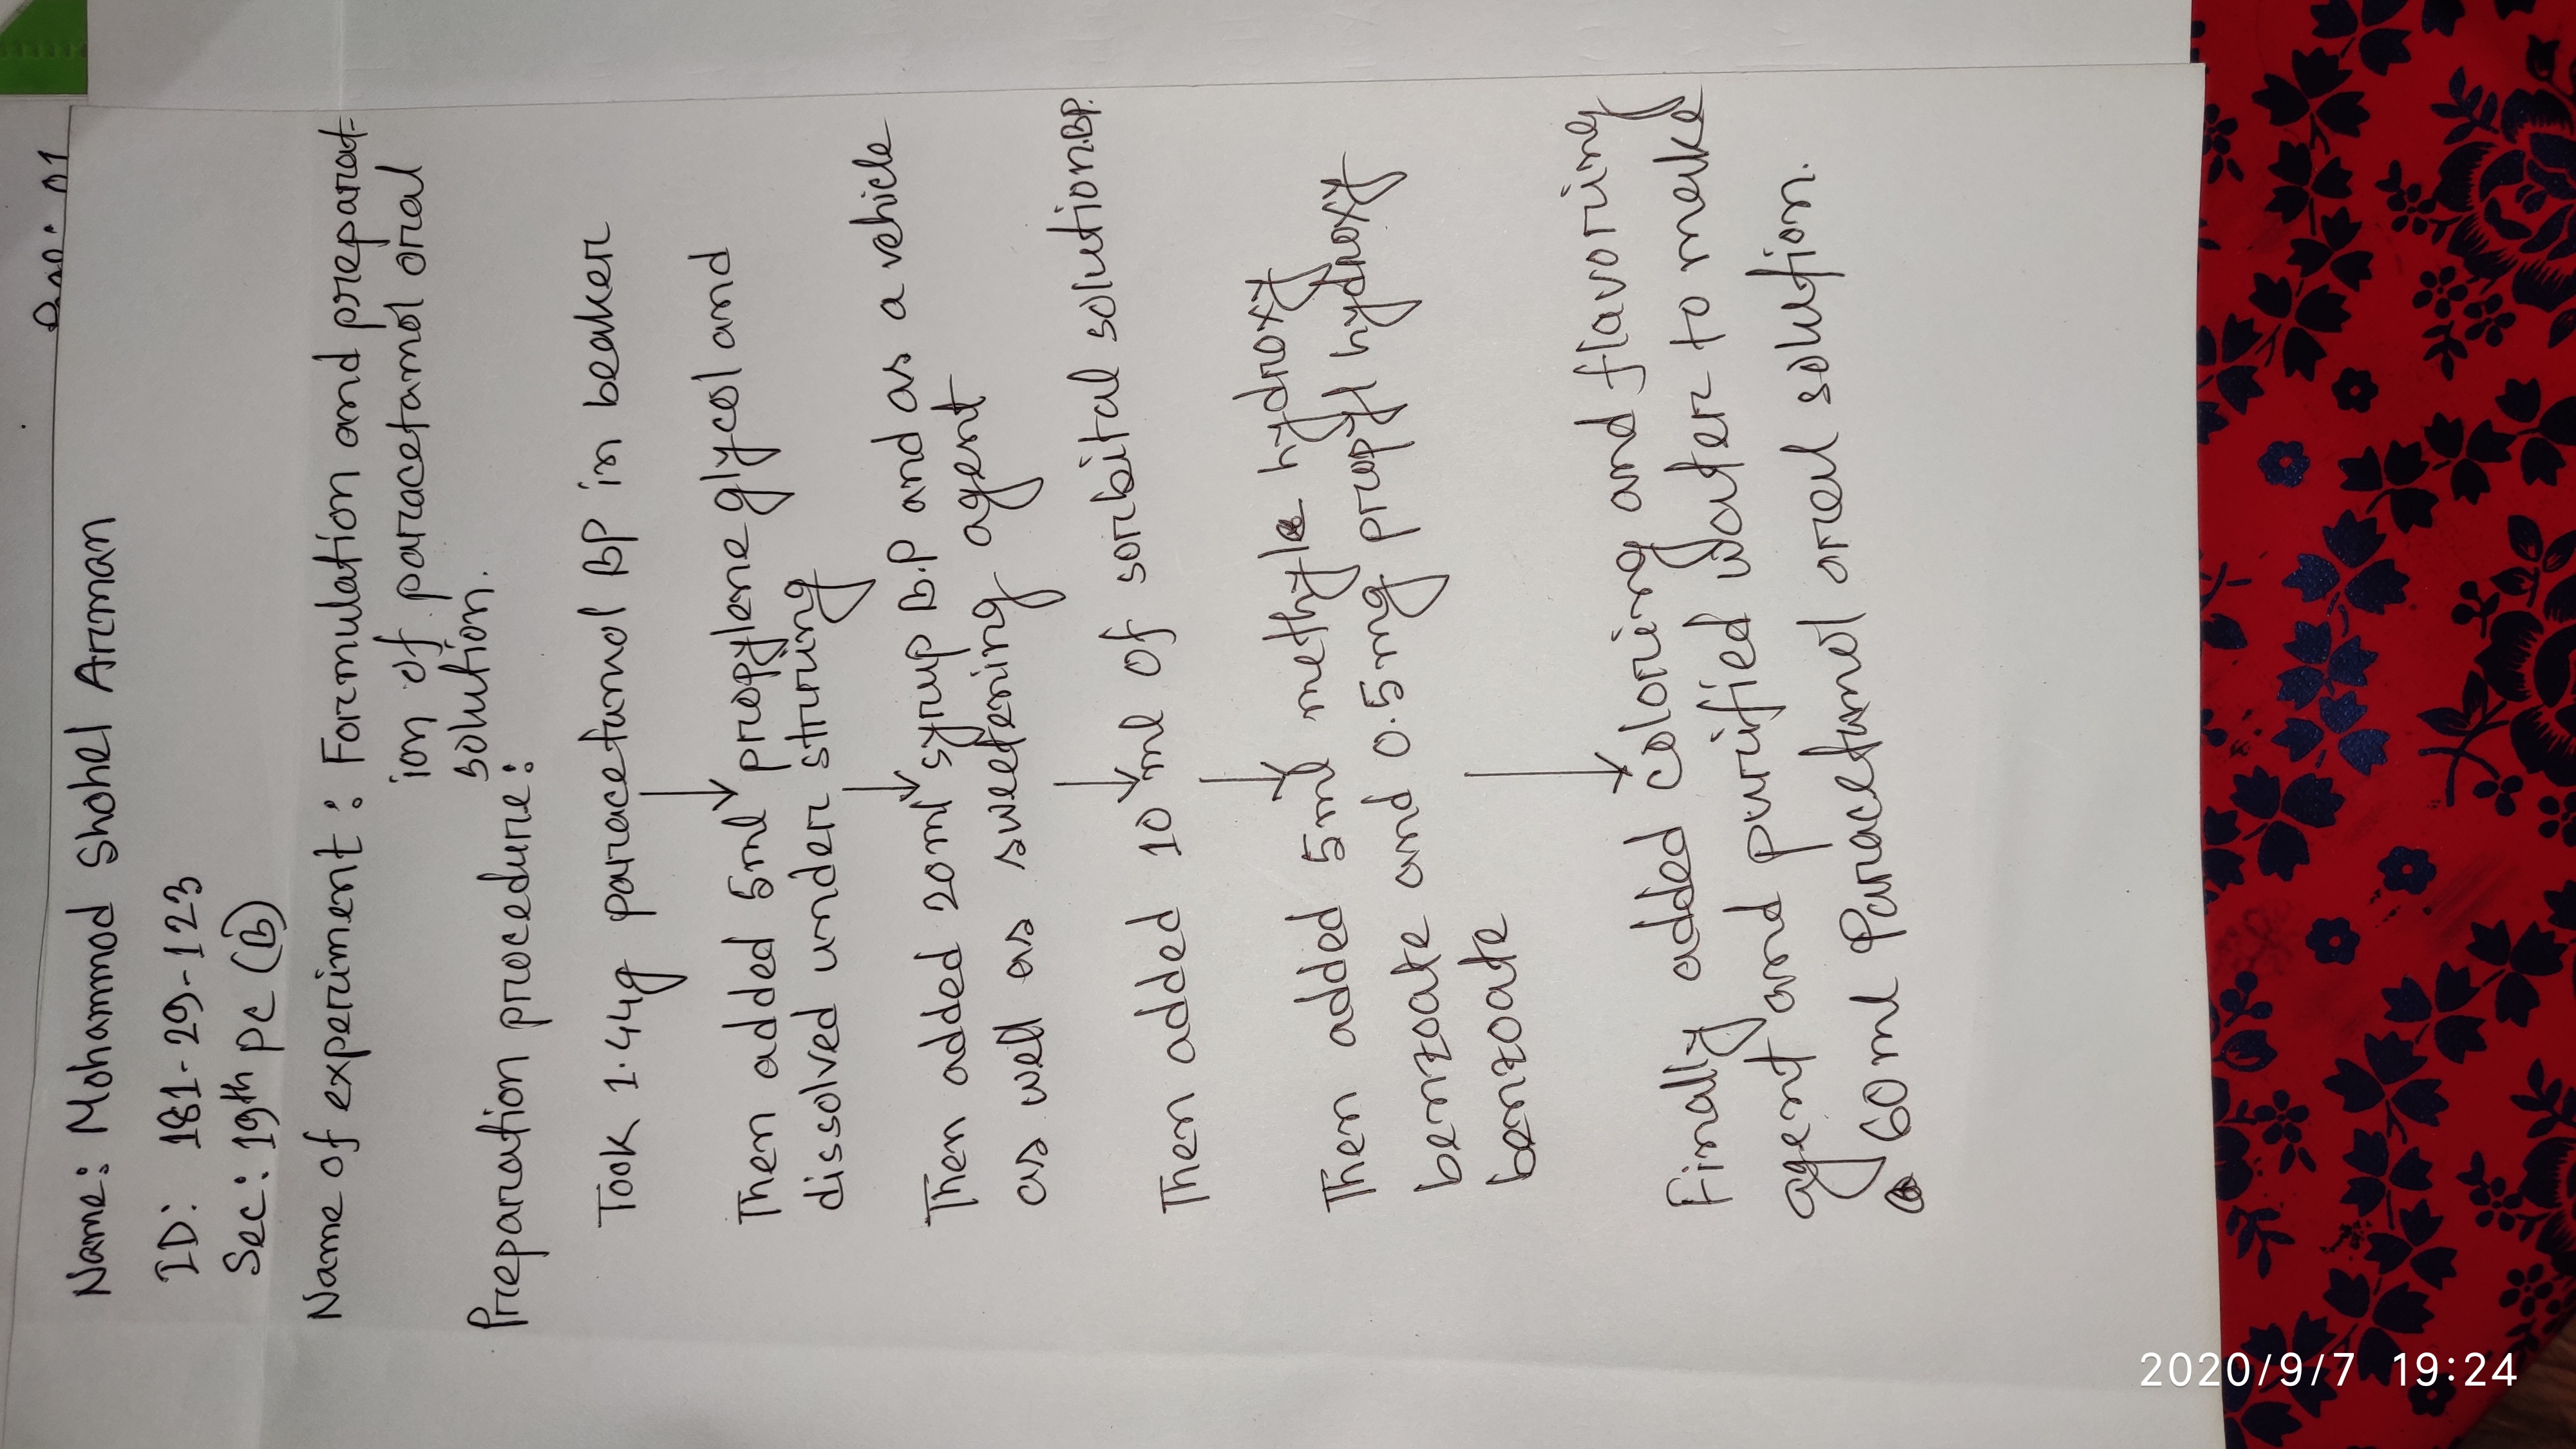 Name: Mohammod Shohel Arman
ID: 181-29-123
Sec: 19th PC (B)
Name of experiment: Formulation and preparat-
ion of paracetamol oral
solution.
Preparation procedure:
Took 1.44g paracetamol BP in beaker
Then added 5ml propylene glycol and
dissolved under strring
Then added 20ml syrup B.P and as a vehicle
as well as sweetening agent
Then added 10 ml of sorbital solution BP.
Then added 5ml methyle hydroxy
benzoate and 0.5mg propyl hydroxy
benzoate
Finally added coloring and flavoring
agent and purified water to make
60ml Paracetamol oral solution.
2020/9/7 19:24